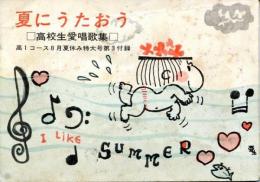 夏にうたおう
□高校生愛唱歌集□
高1コース8月夏休み特大号第3付録
I LiKE
SUMMER